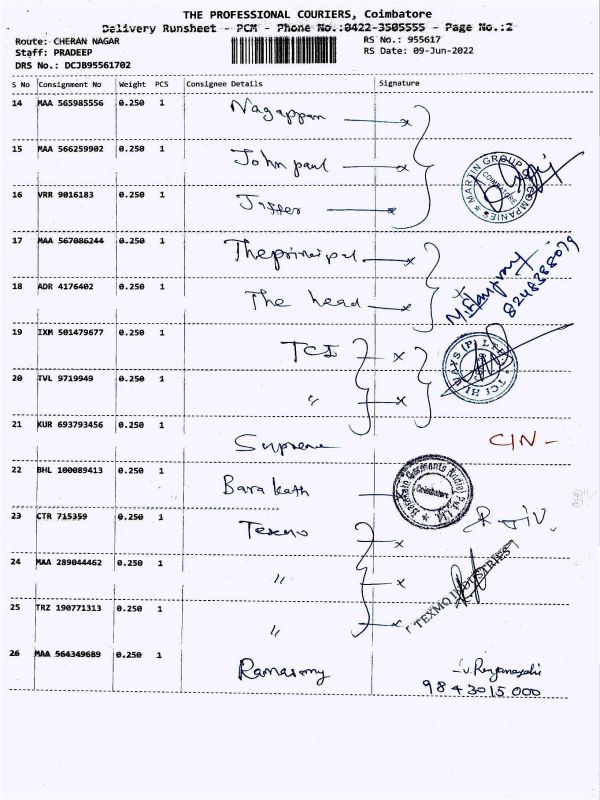 THE PROFESSIONAL COURIERS, Coimbatore
Delivery Runsheet - PCM - Phone No.:0422-3505555 - Page No.:2
Route: CHERAN NAGAR RS No.: 955617
Staff: PRADEEP RS Date: 09-Jun-2022
DRS No.: DCJB95561702
S No Consignment No Weight PCS Consignee Details Signature
14 MAA 565985556 0.250 1 Nagappan
15 MAA 566259902 0.250 1 John paul
MARTIN GROUP COMPANIES
COIMBATORE
16 VRR 9016183 0.250 1
17 MAA 567086244 0.250 1 The principal
8248388079
18 ADR 4176402 0.250 1 The head
19 IXM 501479677 0.250 1 TCI
TCI HIWAYS (P) LTD
20 TVL 9719949 0.250 1 "
21 KUR 693793456 0.250 1 Supreme CIN -
22 BHL 100089413 0.250 1 Barakath
Garments (India) Pvt. Ltd.
Coimbatore
23 CTR 715359 0.250 1 Texmo
24 MAA 289044462 0.250 1 "
TEXMO INDUSTRIES
25 TRZ 190771313 0.250 1 "
26 MAA 564349689 0.250 1 Ramasamy
9843015000